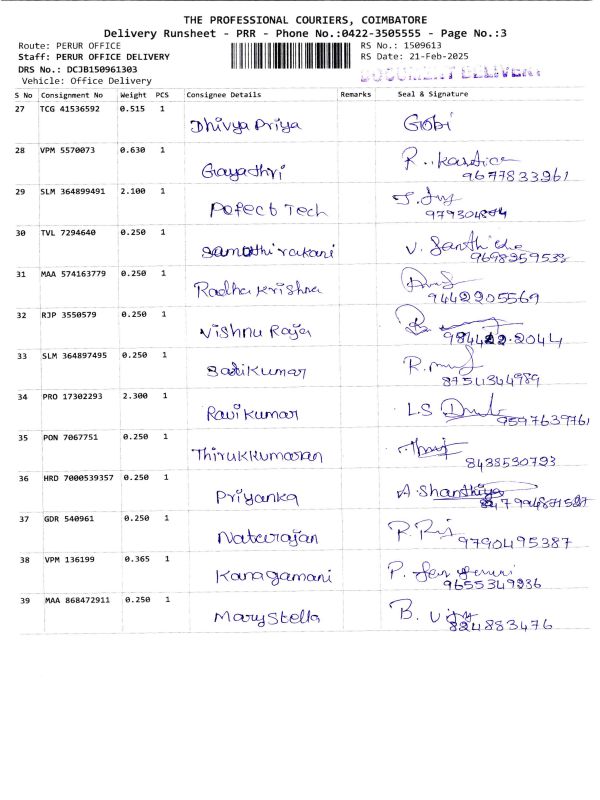 THE PROFESSIONAL COURIERS, COIMBATORE
Delivery Runsheet - PRR - Phone No.:0422-3505555 - Page No.:3
Route: PERUR OFFICE RS No.: 1509613
Staff: PERUR OFFICE DELIVERY RS Date: 21-Feb-2025
DRS No.: DCJB150961303 DOCUMENT DELIVERY
Vehicle: Office Delivery
S No Consignment No Weight PCS Consignee Details Remarks Seal & Signature
27 TCG 41536592 0.515 1
Dhivya Priya Gobi
28 VPM 5570073 0.630 1
Gayathri R. Kartice
9677833961
29 SLM 364899491 2.100 1
Pofect Tech
30 TVL 7294640 0.250 1
9698359533
31 MAA 574163779 0.250 1
Radha Krishna
9442205569
32 RJP 3550579 0.250 1
Vishnu Raja
33 SLM 364897495 0.250 1
Satikumar
8754344989
34 PRO 17302293 2.300 1
Ravi Kumar L.S
9597639761
35 PON 7067751 0.250 1
Thirukkumaran
8438530793
36 HRD 7000539357 0.250 1
Priyanka A. Shanthiya
37 GDR 540961 0.250 1
Natarajan
9790495387
38 VPM 136199 0.365 1
Kanagamani
9655349336
39 MAA 868472911 0.250 1
Mary Stella B. Vijy
824883476